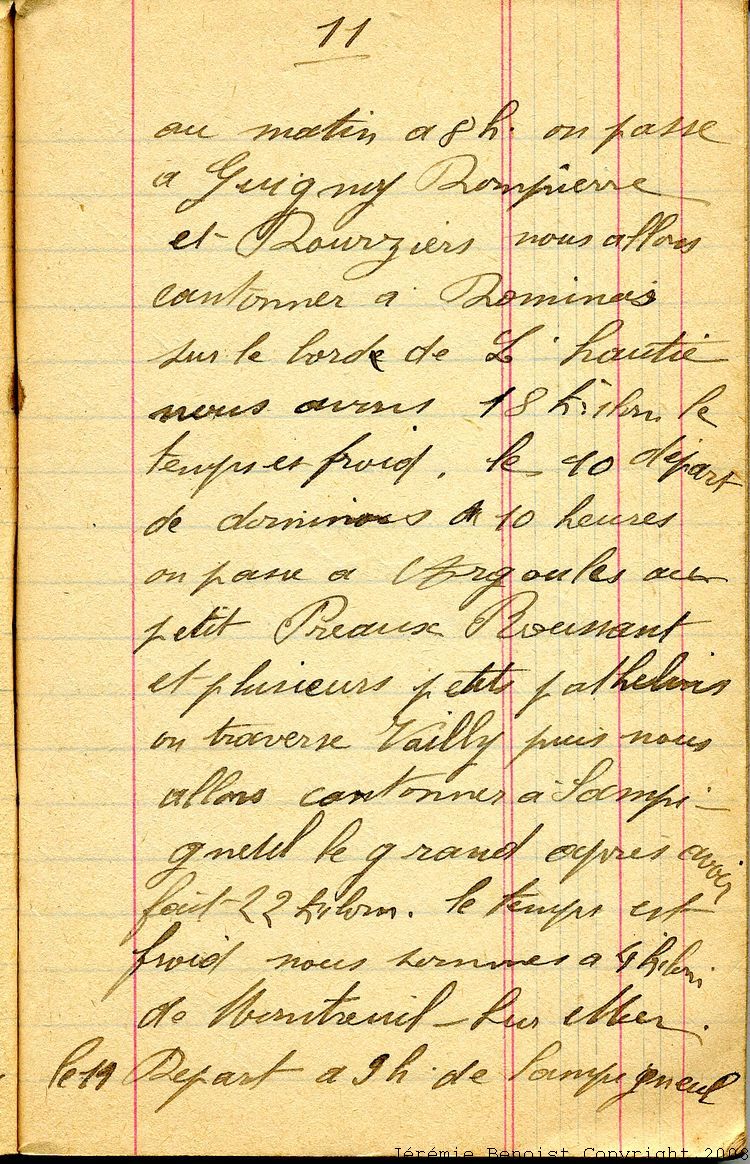 11
au matin a 8 h. on passe
a Guigny Dompierre
et Rourziers nous allons
cantonner a Dominois
sur le borde de L'hautie
nous avons 18 kilom le
temps es froid. le 10 départ
de dominois a 10 heures
on passe a Argoules au
petit Preaux Roussant
et plusieurs petits pathelins
on traverse Vailly puis nous
allons cantonner a Campi-
gneul le grand apres avoir
fait 22 kilom. le temps est
froid nous sommes a 4 kilom
de Montreuil-sur Mer.
le 11 Depart a 9 h. de Campigneul
Jérémie Benoist Copyright